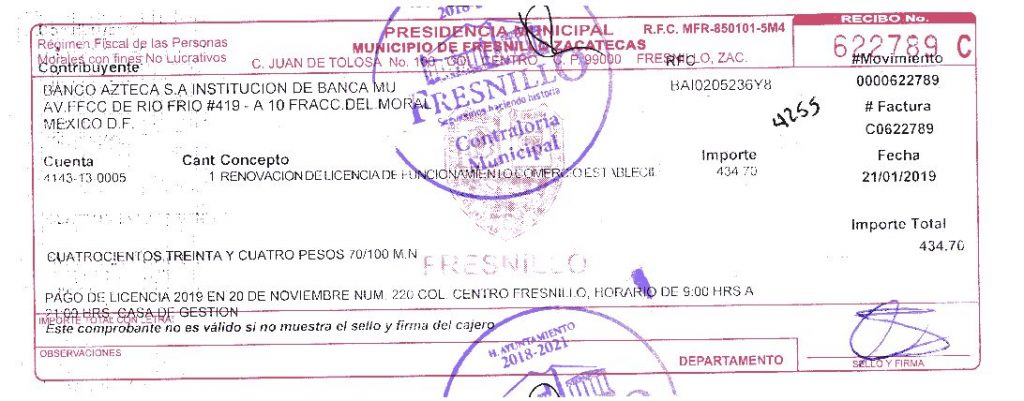 2018-2021
PRESIDENCIA MUNICIPAL
R.F.C. MFR-850101-5M4
RECIBO No.
Régimen Fiscal de las Personas
MUNICIPIO DE FRESNILLO ZACATECAS
622789 C
Morales con fines No Lucrativos
C. JUAN DE TOLOSA No. 100 COL. CENTRO C. P. 99000 FRESNILLO, ZAC.
Contribuyente
RFC
#Movimiento
BANCO AZTECA S.A INSTITUCION DE BANCA MU
BAI0205236Y8
0000622789
AV.FFCC DE RIO FRIO #419 - A 10 FRACC.DEL MORAL
MEXICO D.F.
FRESNILLO
Seguiremos haciendo historia
Contraloría
Municipal
4255
# Factura
C0622789
Cuenta
Cant Concepto
Importe
Fecha
4143-13-0005
1 RENOVACION DE LICENCIA DE FUNCIONAMIENTO COMERCIO ESTABLECII
434.70
21/01/2019
Importe Total
434.70
CUATROCIENTOS TREINTA Y CUATRO PESOS 70/100 M.N
FRESNILLO
PAGO DE LICENCIA 2019 EN 20 DE NOVIEMBRE NUM. 220 COL. CENTRO FRESNILLO, HORARIO DE 9:00 HRS A
21:00 HRS. CASA DE GESTION
IMPORTE TOTAL CON LETRA:
Este comprobante no es válido si no muestra el sello y firma del cajero
OBSERVACIONES
H. AYUNTAMIENTO
2018-2021
DEPARTAMENTO
SELLO Y FIRMA